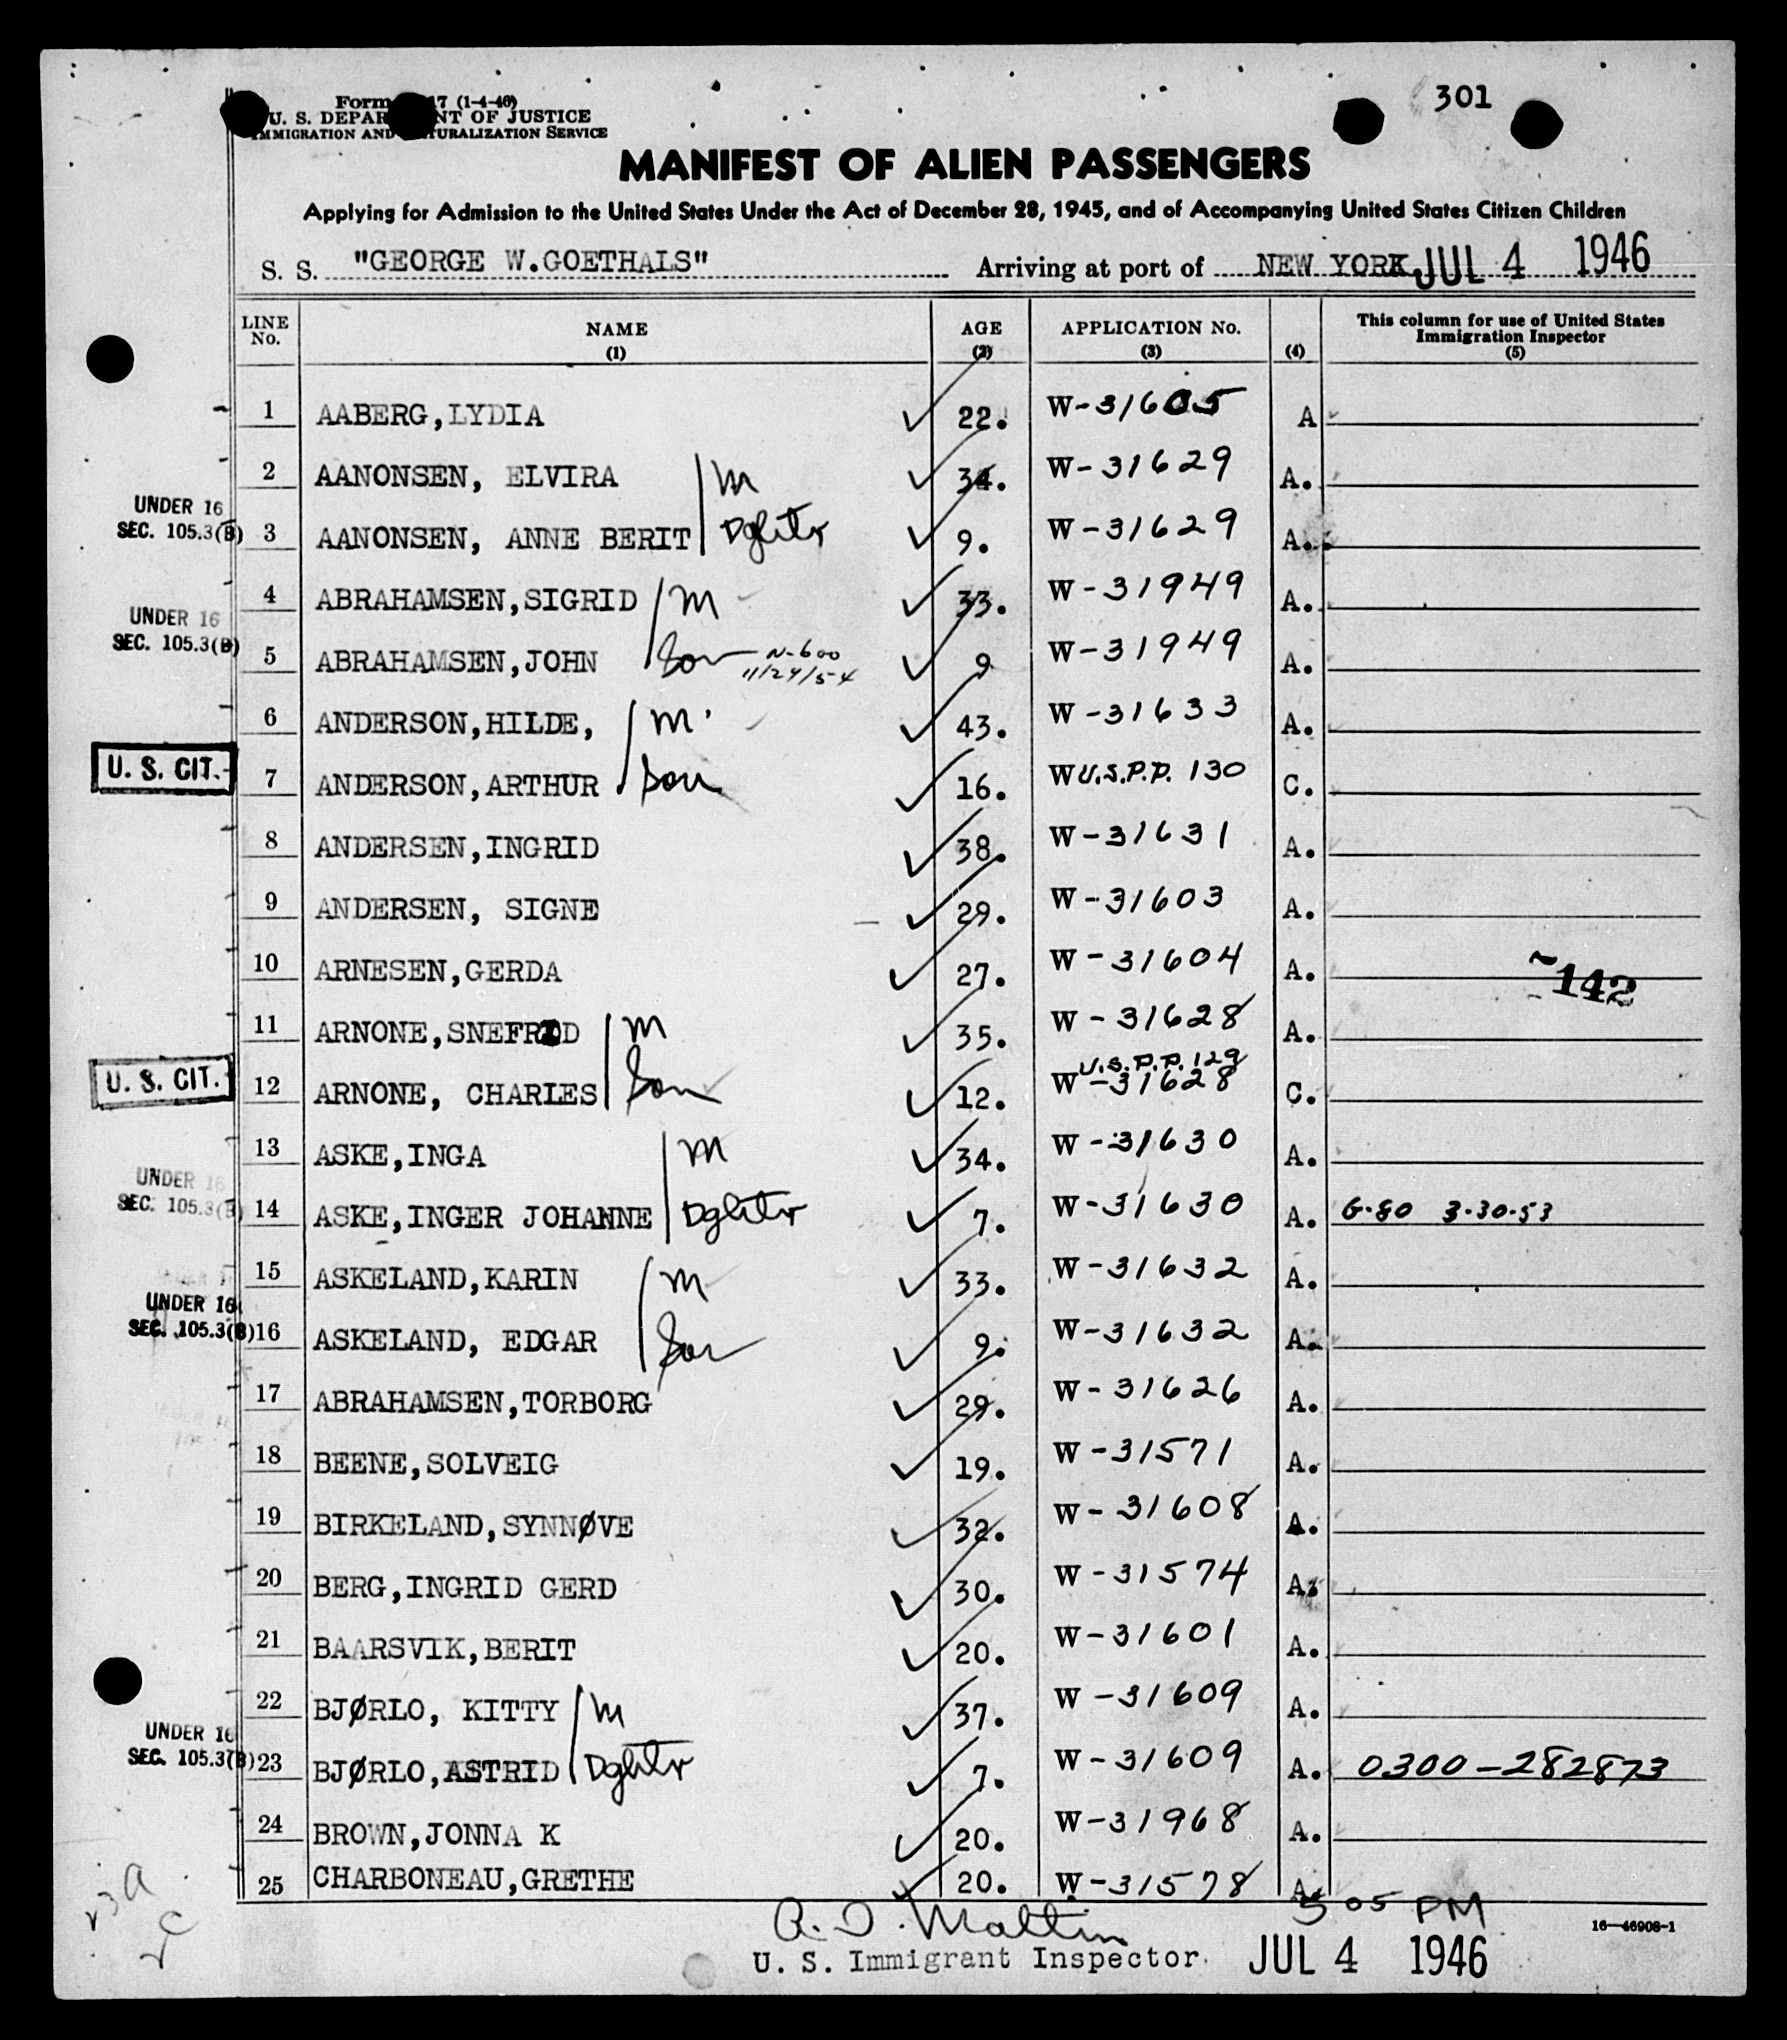 301
U. S. DEPARTMENT OF JUSTICE
IMMIGRATION AND NATURALIZATION SERVICE
MANIFEST OF ALIEN PASSENGERS
Applying for Admission to the United States Under the Act of December 28, 1945, and of Accompanying United States Citizen Children
S. S. "GEORGE W.GOETHALS" Arriving at port of NEW YORK, JUL 4 1946
LINE No. NAME (1) AGE (2) APPLICATION No. (3) (4) This column for use of United States Immigration Inspector (5)
1 AABERG,LYDIA 22. W-31605 A
2 AANONSEN, ELVIRA M 34. W-31629 A.
UNDER 16
SEC. 105.3(B) 3 AANONSEN, ANNE BERIT Dghtr 9. W-31629 A.
4 ABRAHAMSEN,SIGRID M 33. W-31949 A.
UNDER 16
SEC. 105.3(B) 5 ABRAHAMSEN,JOHN Son N-600 11/24/54 9 W-31949 A.
6 ANDERSON,HILDE, M. 43. W-31633 A.
U. S. CIT. 7 ANDERSON,ARTHUR Son 16. W U.S.P.P. 130 C.
8 ANDERSEN,INGRID 38. W-31631 A.
9 ANDERSEN, SIGNE 29. W-31603 A.
10 ARNESEN,GERDA 27. W-31604 A. 142
11 ARNONE,SNEFRID M 35. W-31628 A.
U. S. CIT. 12 ARNONE, CHARLES Son 12. U.S.P.P. 129 W-31628 C.
13 ASKE,INGA M 34. W-31630 A.
UNDER 16
SEC. 105.3(B) 14 ASKE,INGER JOHANNE Dghtr 7. W-31630 A. G-80 3-30-53
15 ASKELAND,KARIN M 33. W-31632 A.
UNDER 16
SEC. 105.3(B) 16 ASKELAND, EDGAR Son 9. W-31632 A.
17 ABRAHAMSEN,TORBORG 29. W-31626 A.
18 BEENE,SOLVEIG 19. W-31571 A.
19 BIRKELAND,SYNNØVE 32. W-31608 A.
20 BERG,INGRID GERD 30. W-31574 A.
21 BAARSVIK,BERIT 20. W-31601 A.
22 BJØRLO, KITTY M 37. W-31609 A.
UNDER 16
SEC. 105.3(B) 23 BJØRLO,ASTRID Dghtr 7. W-31609 A. 0300-282873
24 BROWN,JONNA K 20. W-31968 A.
25 CHARBONEAU,GRETHE 20. W-31578 A.
5 05 PM
16—46908-1
U. S. Immigrant Inspector. JUL 4 1946